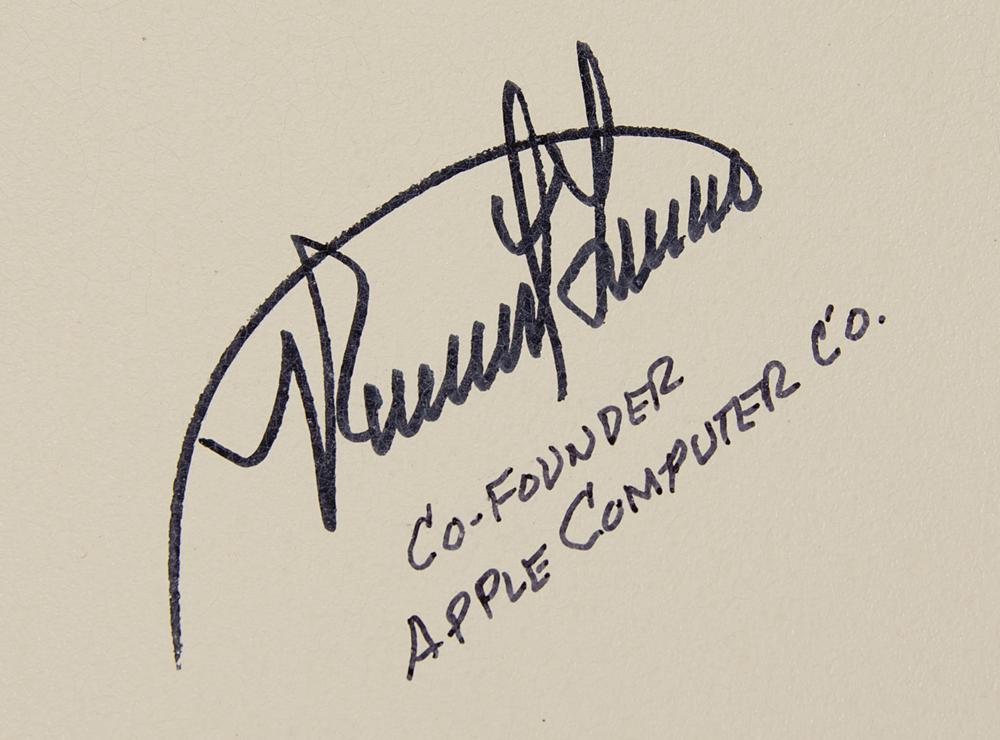 Co-Founder
Apple Computer Co.